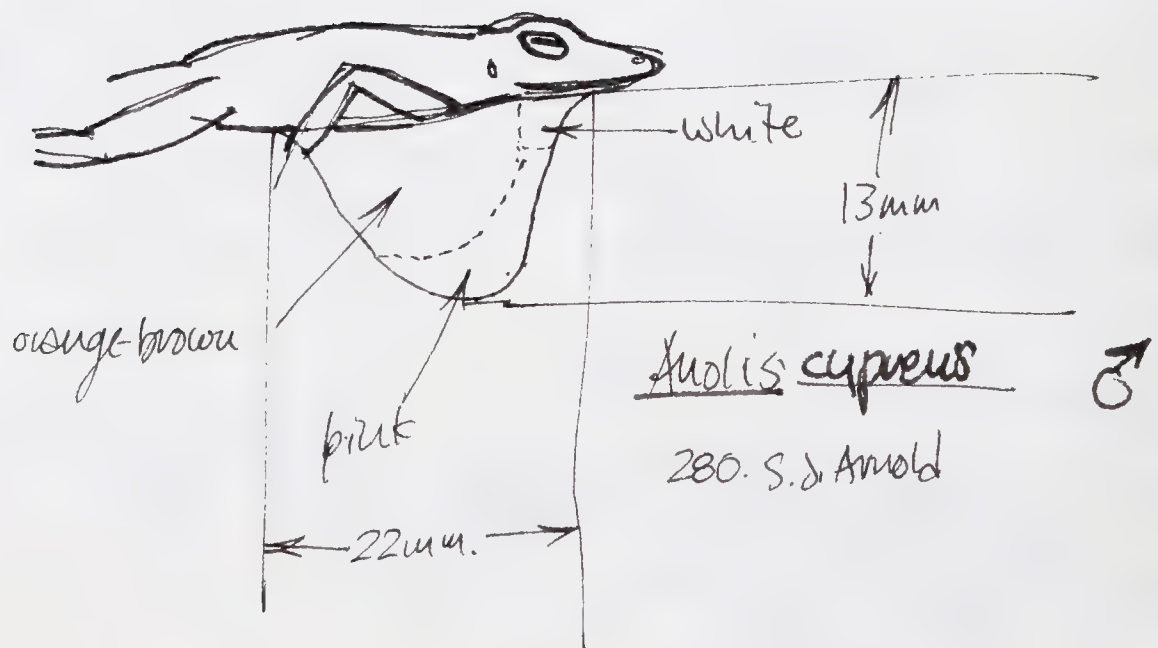 white
13mm
orange-brown
pink
Anolis cupreus ♂
280. S.J. Arnold
22mm.